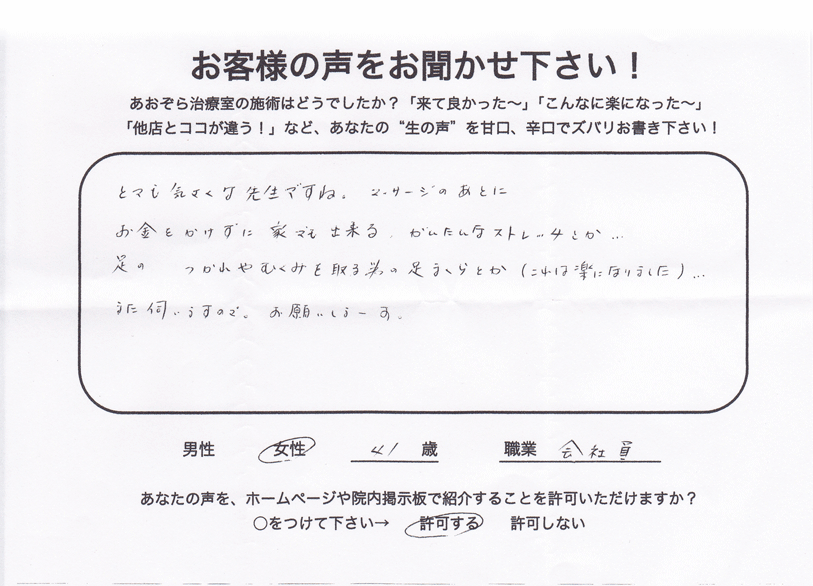 お客様の声をお聞かせ下さい！
あおぞら治療室の施術はどうでしたか？「来て良かった〜」「こんなに楽になった〜」
「他店とココが違う！」など、あなたの“生の声”を甘口、辛口でズバリお書き下さい！
とても気さくな先生ですね。マッサージのあとに
お金をかけずに家でも出来る、かんたんなストレッチとか…
足の つかれやむくみを取る為の足まくらとか(これは楽になりました)…
また伺いますので。お願いしまーす。
男性 女性 41 歳 職業 会社員
あなたの声を、ホームページや院内掲示板で紹介することを許可いただけますか？
○をつけて下さい→ 許可する 許可しない